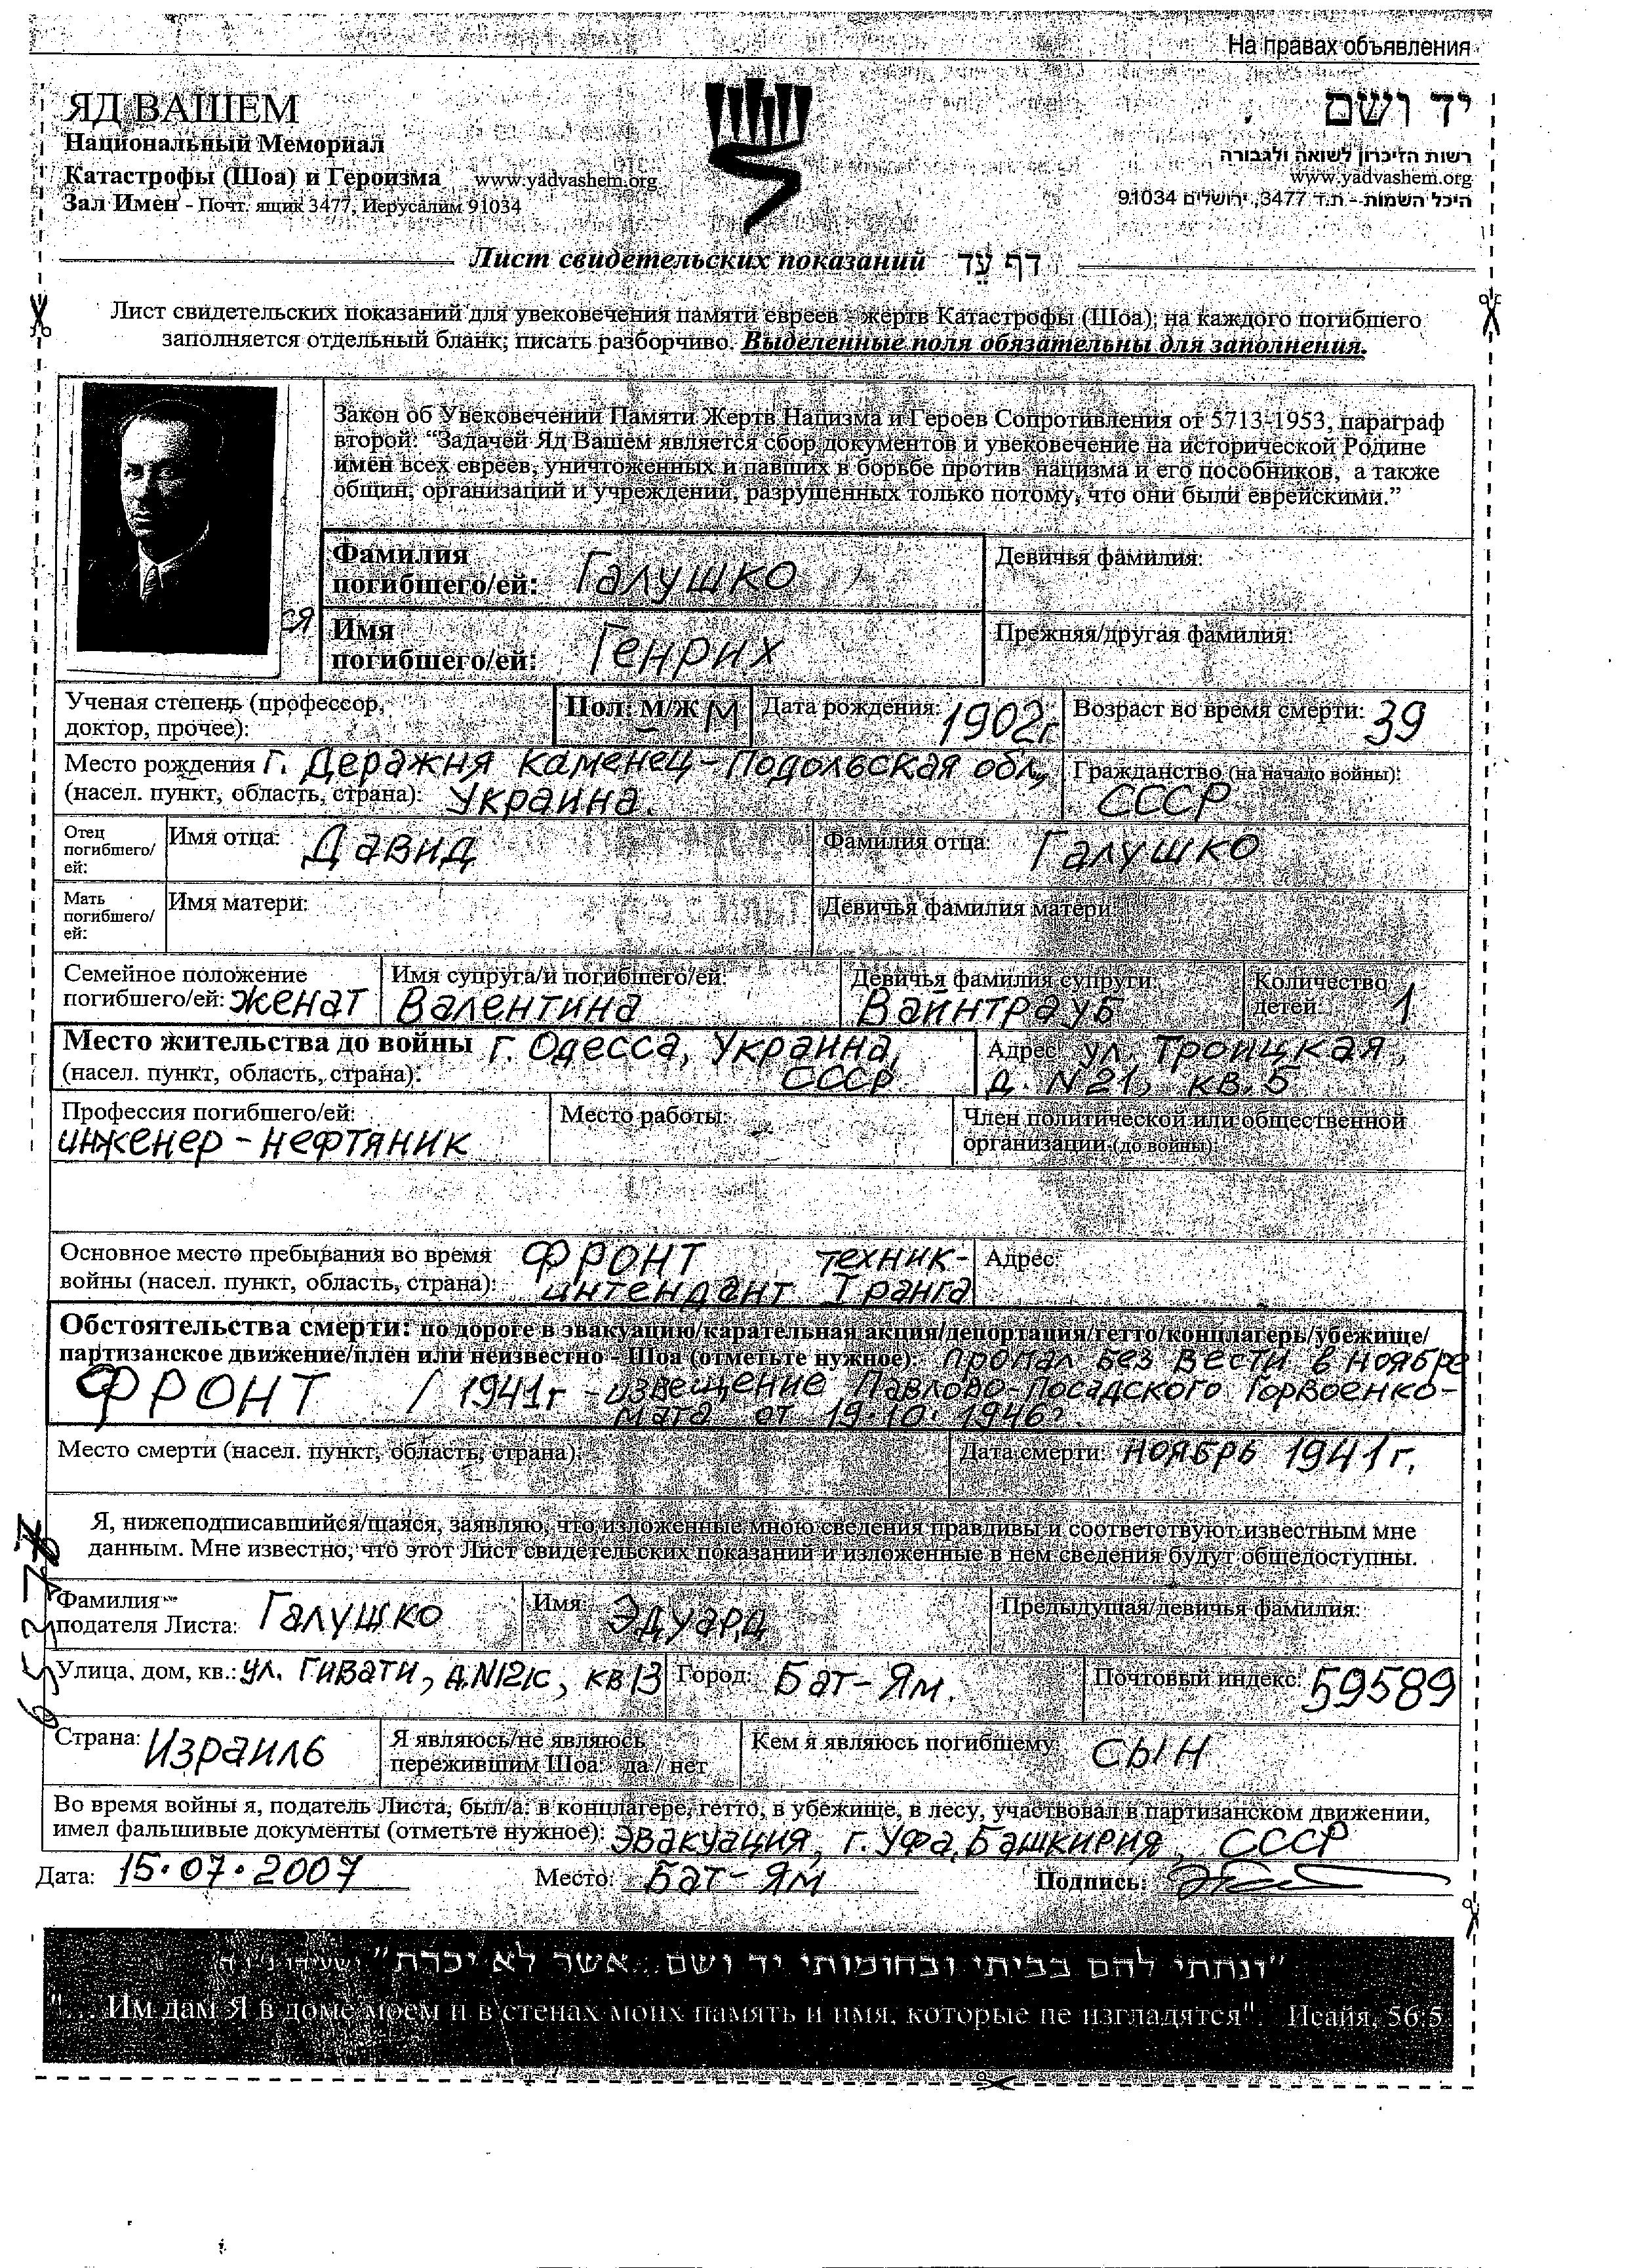 На правах объявления
ЯД ВАШЕМ
Национальный Мемориал
Катастрофы (Шоа) и Героизма www.yadvashem.org
Зал Имен - Почт. ящик 3477, Иерусалим 91034
יד ושם
רשות הזיכרון לשואה ולגבורה
www.yadvashem.org
היכל השמות - ת.ד 3477, ירושלים 91034
Лист свидетельских показаний דף עֵד
Лист свидетельских показаний для увековечения памяти евреев - жертв Катастрофы (Шоа); на каждого погибшего
заполняется отдельный бланк; писать разборчиво. Выделенные поля обязательны для заполнения.
Закон об Увековечении Памяти Жертв Нацизма и Героев Сопротивления от 5713-1953, параграф
второй: “Задачей Яд Вашем является сбор документов и увековечение на исторической Родине
имен всех евреев, уничтоженных и павших в борьбе против нацизма и его пособников, а также
общин, организаций и учреждений, разрушенных только потому, что они были еврейскими.”
Фамилия
погибшего/ей: Галушко
Девичья фамилия:
ся
Имя
погибшего/ей: Генрих
Прежняя/другая фамилия:
Ученая степень (профессор,
доктор, прочее):
Пол: М/Ж М
Дата рождения: 1902г
Возраст во время смерти: 39
Место рождения г. Деражня Каменец-Подольская обл.,
(насел. пункт, область, страна): Украина.
Гражданство (на начало войны):
СССР
Отец
погибшего/
ей:
Имя отца: Давид
Фамилия отца: Галушко
Мать
погибшего/
ей:
Имя матери:
Девичья фамилия матери:
Семейное положение
погибшего/ей: женат
Имя супруга/и погибшего/ей:
Валентина
Девичья фамилия супруги:
Вайнтрауб
Количество
детей: 1
Место жительства до войны г. Одесса, Украина,
(насел. пункт, область, страна): СССР
Адрес: ул. Троицкая,
д. N21, кв. 5
Профессия погибшего/ей:
инженер-нефтяник
Место работы:
Член политической или общественной
организации (до войны):
Основное место пребывания во время ФРОНТ техник-
войны (насел. пункт, область, страна): интендант I ранга
Адрес:
Обстоятельства смерти: по дороге в эвакуацию/карательная акция/депортация/гетто/концлагерь/убежище/
партизанское движение/плен или неизвестно - Шоа (отметьте нужное): пропал без вести в ноябре
ФРОНТ / 1941г - извещение Павлово-Посадского Горвоенко-
мата от 19.10.1946г
Место смерти (насел. пункт, область, страна):
Дата смерти: ноябрь 1941г.
Я, нижеподписавшийся/шаяся, заявляю, что изложенные мною сведения правдивы и соответствуют известным мне
данным. Мне известно, что этот Лист свидетельских показаний и изложенные в нем сведения будут общедоступны.
Фамилия
подателя Листа: Галушко
Имя: Эдуард
Предыдущая/девичья фамилия:
Улица, дом, кв.: ул. Гивати, д.N12/c, кв13
Город: Бат-Ям.
Почтовый индекс: 59589
Страна: Израиль
Я являюсь/не являюсь
пережившим Шоа: да / нет
Кем я являюсь погибшему: сын
Во время войны я, податель Листа, был/а: в концлагере, гетто, в убежище, в лесу, участвовал в партизанском движении,
имел фальшивые документы (отметьте нужное): Эвакуация, г. Уфа, Башкирия, СССР
Дата: 15.07.2007 Место: Бат-Ям Подпись:
"ונתתי להם בביתי ובחומותי יד ושם...אשר לא יכרת" ישעיהו נ"ו ה
"... Им дам Я в доме моем и в стенах моих память и имя, которые не изгладятся". Исайя, 56:5